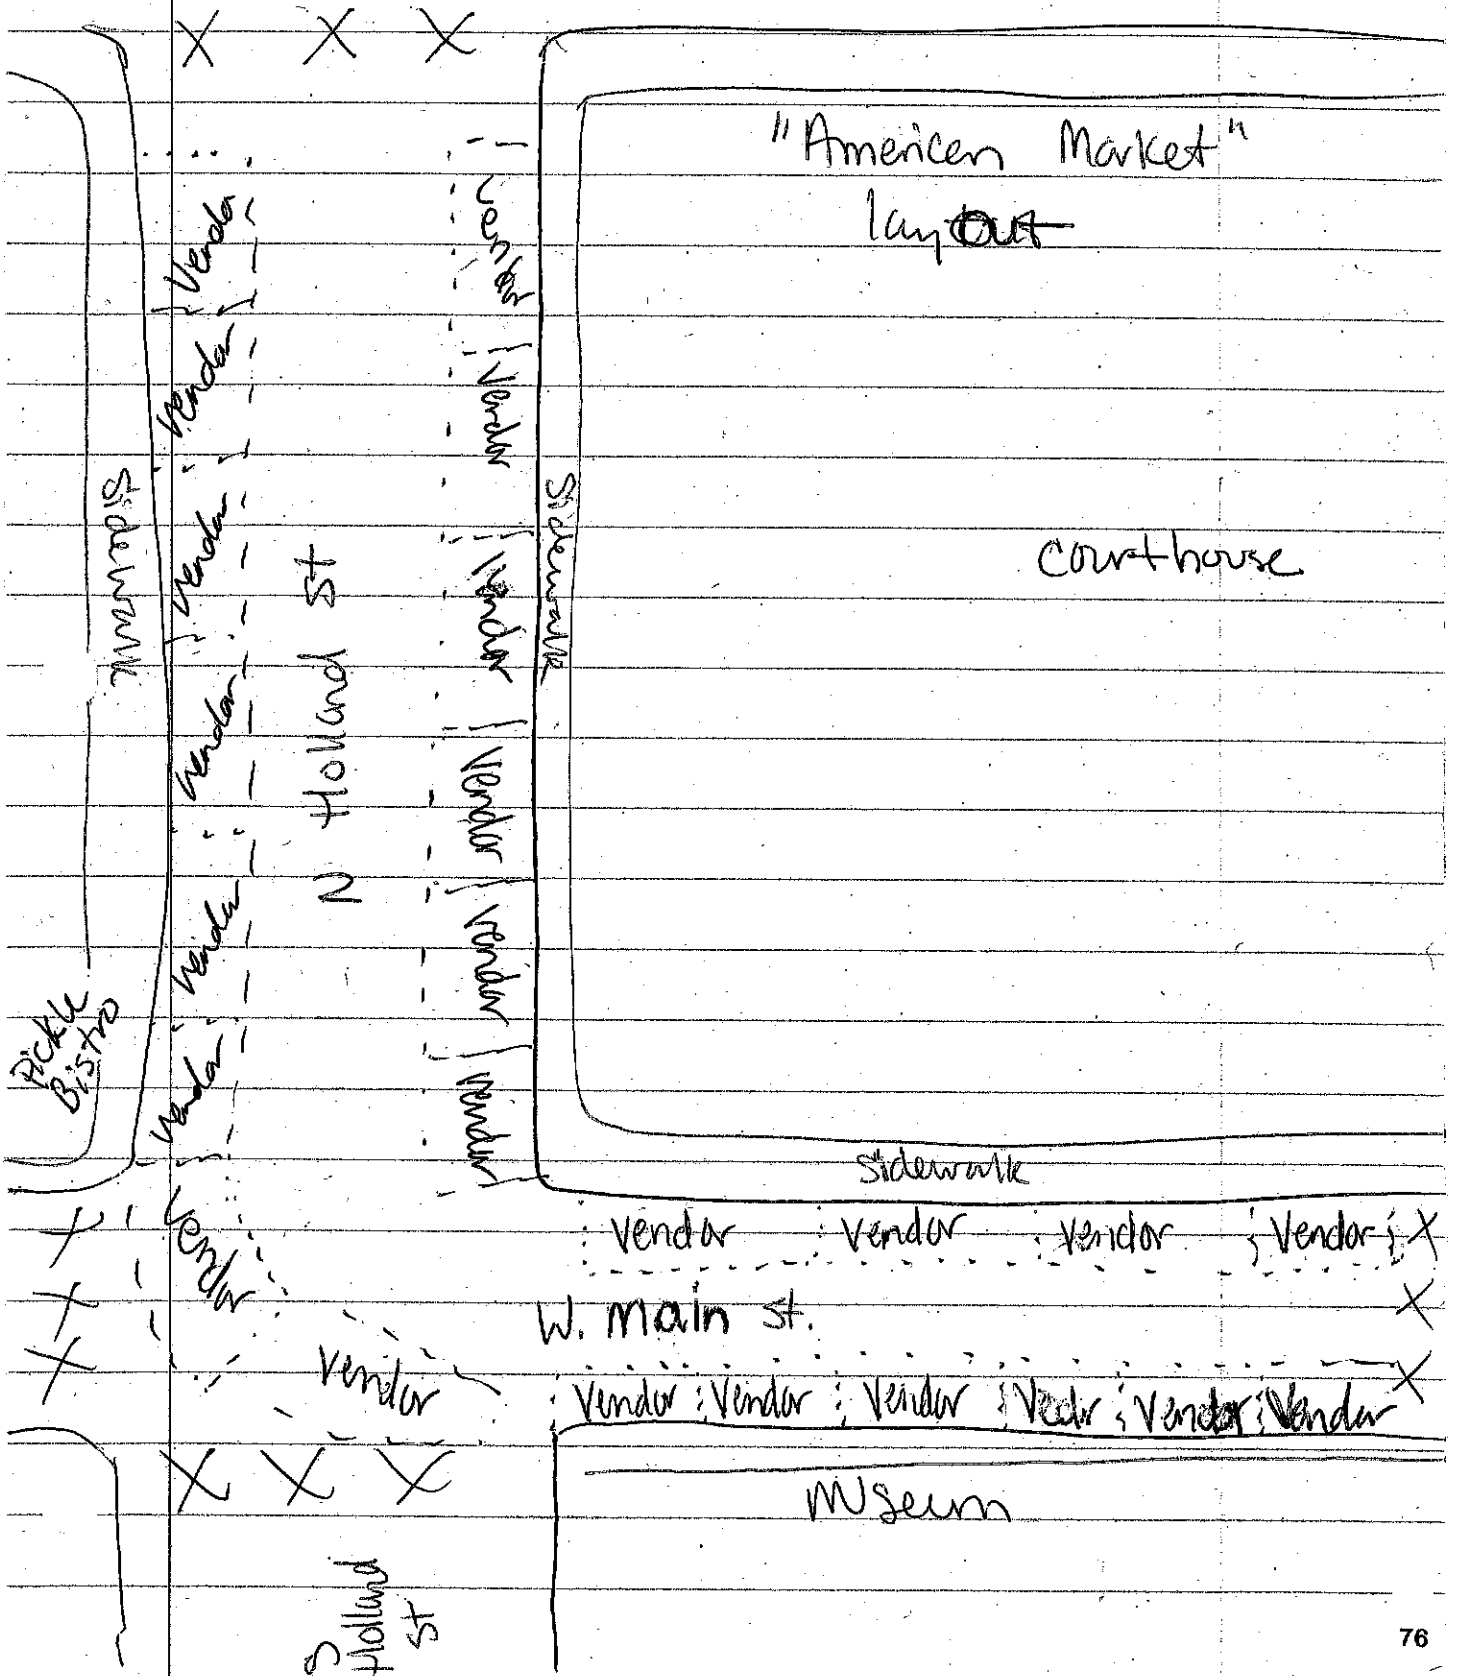 X X X
"American Market"
layout
Vendor
Vendor
Vendor
Vendor
Vendor
Vendor
Sidewalk
N Holland St
Vendor
Vendor
Vendor
Vendor
Vendor
Vendor
Sidewalk
Courthouse
Pickle
Bistro
Sidewalk
X Vendor Vendor Vendor Vendor Vendor X
X W. Main St. X
X Vendor X
Vendor Vendor Vendor Vedr Vendor Vendor
X X X
Museum
S Holland St
76